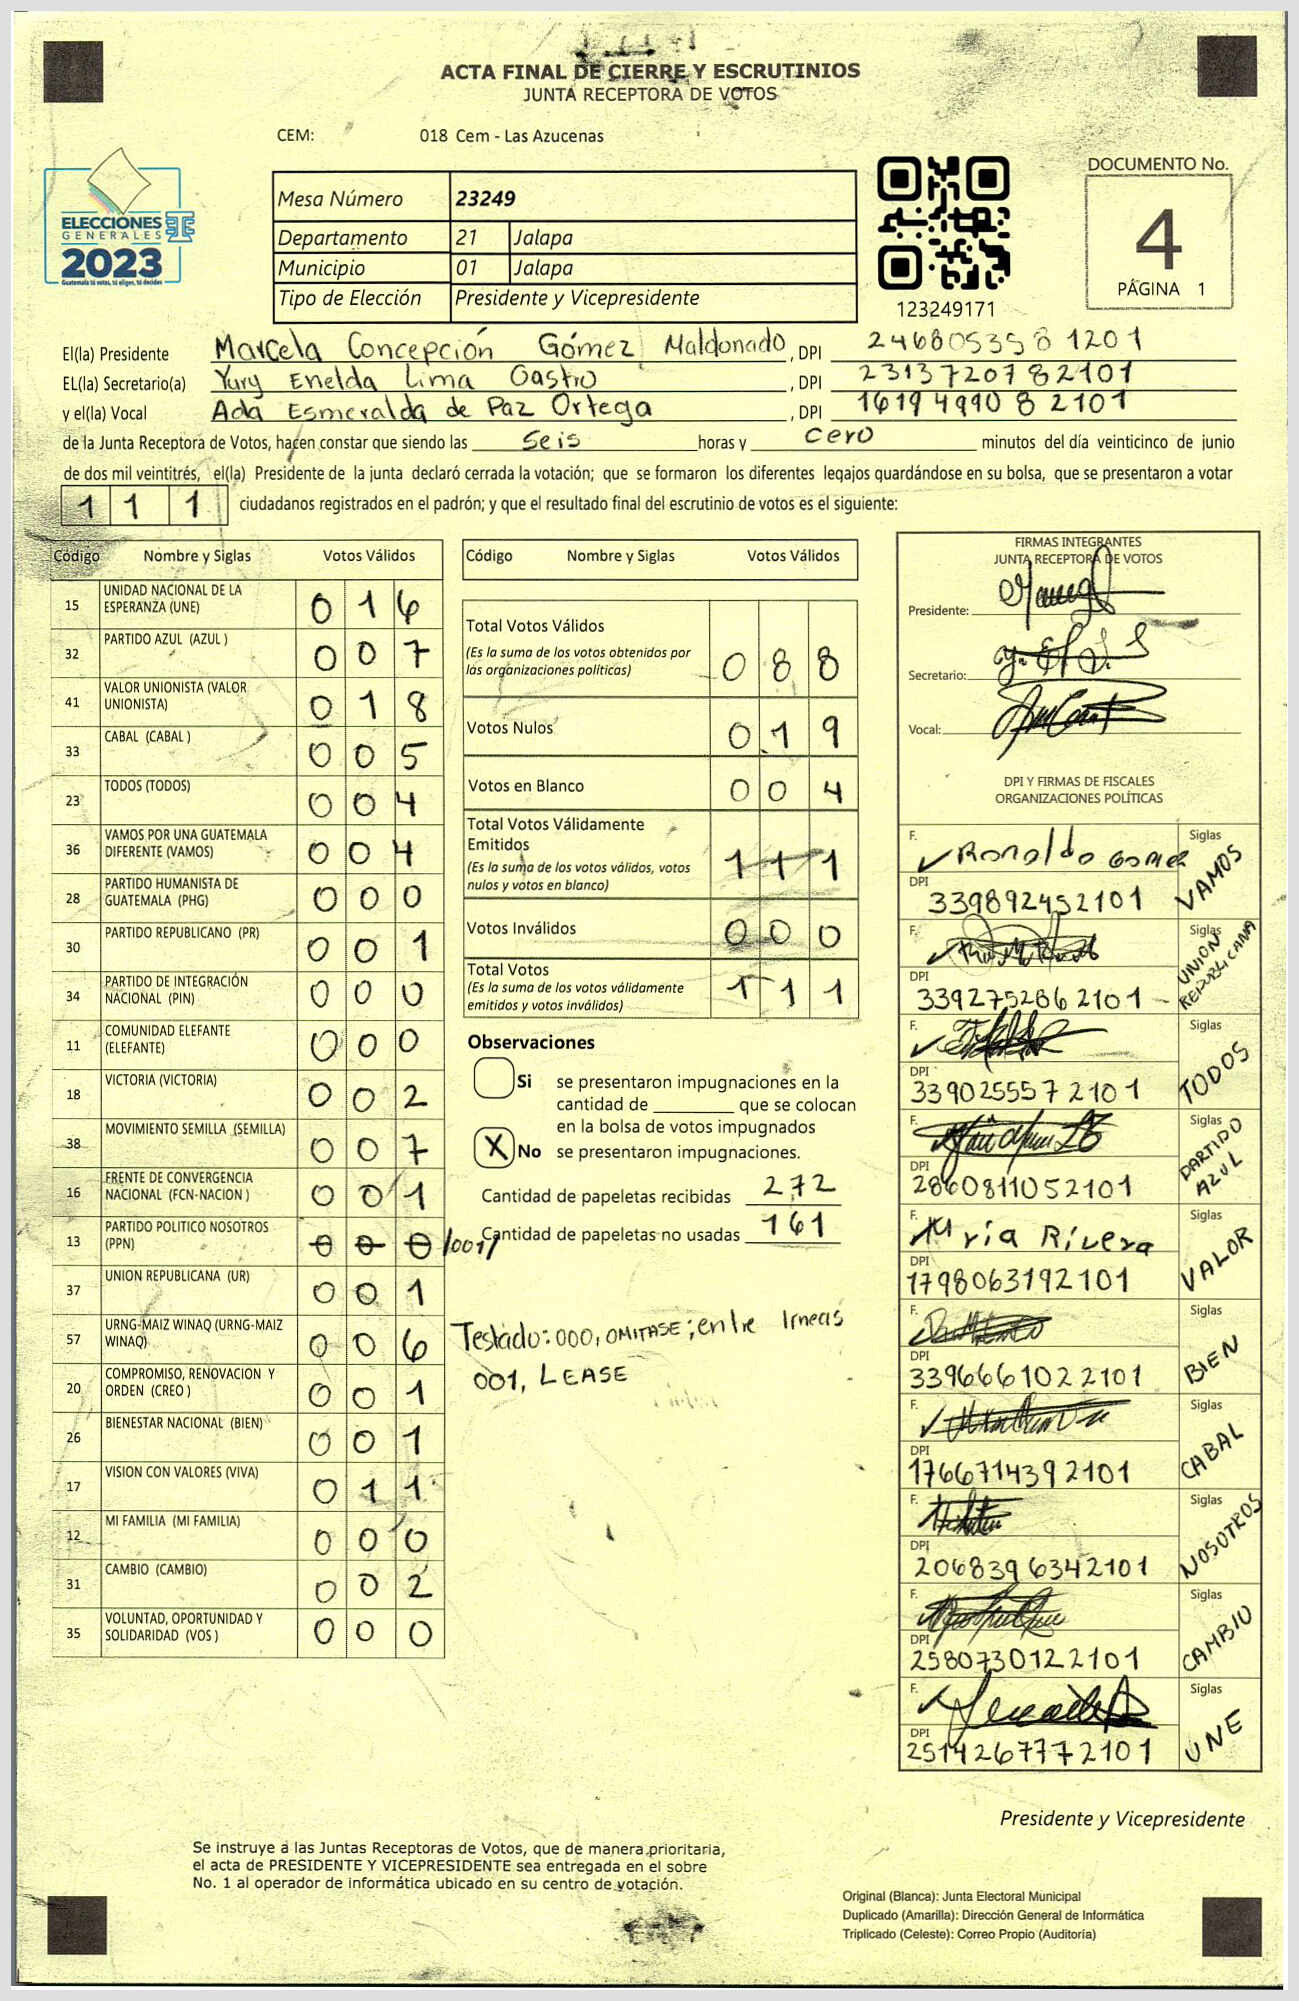 ACTA FINAL DE CIERRE Y ESCRUTINIOS
JUNTA RECEPTORA DE VOTOS
CEM: 018 Cem - Las Azucenas
ELECCIONES
GENERALES
2023
Guatemala tú votas, tú eliges, tú decides
Mesa Número 23249
Departamento 21 Jalapa
Municipio 01 Jalapa
Tipo de Elección Presidente y Vicepresidente
123249171
DOCUMENTO No.
4
PÁGINA 1
El(la) Presidente Marcela Concepción Gómez Maldonado, DPI 2468053581201
EL(la) Secretario(a) Yury Enelda Lima Castro, DPI 2313720782101
y el(la) Vocal Ada Esmeralda de Paz Ortega, DPI 1619499082101
de la Junta Receptora de Votos, hacen constar que siendo las seis horas y cero minutos del día veinticinco de junio
de dos mil veintitrés, el(la) Presidente de la junta declaró cerrada la votación; que se formaron los diferentes legajos guardándose en su bolsa, que se presentaron a votar
1 1 1 ciudadanos registrados en el padrón; y que el resultado final del escrutinio de votos es el siguiente:
Código Nombre y Siglas Votos Válidos
15 UNIDAD NACIONAL DE LA ESPERANZA (UNE) 0 1 6
32 PARTIDO AZUL (AZUL ) 0 0 7
41 VALOR UNIONISTA (VALOR UNIONISTA) 0 1 8
33 CABAL (CABAL ) 0 0 5
23 TODOS (TODOS) 0 0 4
36 VAMOS POR UNA GUATEMALA DIFERENTE (VAMOS) 0 0 4
28 PARTIDO HUMANISTA DE GUATEMALA (PHG) 0 0 0
30 PARTIDO REPUBLICANO (PR) 0 0 1
34 PARTIDO DE INTEGRACIÓN NACIONAL (PIN) 0 0 0
11 COMUNIDAD ELEFANTE (ELEFANTE) 0 0 0
18 VICTORIA (VICTORIA) 0 0 2
38 MOVIMIENTO SEMILLA (SEMILLA) 0 0 7
16 FRENTE DE CONVERGENCIA NACIONAL (FCN-NACION ) 0 0 1
13 PARTIDO POLITICO NOSOTROS (PPN) 0 0 0 /001/
37 UNION REPUBLICANA (UR) 0 0 1
57 URNG-MAIZ WINAQ (URNG-MAIZ WINAQ) 0 0 6
20 COMPROMISO, RENOVACION Y ORDEN (CREO ) 0 0 1
26 BIENESTAR NACIONAL (BIEN) 0 0 1
17 VISION CON VALORES (VIVA) 0 1 1
12 MI FAMILIA (MI FAMILIA) 0 0 0
31 CAMBIO (CAMBIO) 0 0 2
35 VOLUNTAD, OPORTUNIDAD Y SOLIDARIDAD (VOS ) 0 0 0
Código Nombre y Siglas Votos Válidos
Total Votos Válidos 0 8 8
(Es la suma de los votos obtenidos por
las organizaciones políticas)
Votos Nulos 0 1 9
Votos en Blanco 0 0 4
Total Votos Válidamente
Emitidos 1 1 1
(Es la suma de los votos válidos, votos
nulos y votos en blanco)
Votos Inválidos 0 0 0
Total Votos 1 1 1
(Es la suma de los votos válidamente
emitidos y votos inválidos)
Observaciones
Si se presentaron impugnaciones en la
cantidad de ________ que se colocan
en la bolsa de votos impugnados
X No se presentaron impugnaciones.
Cantidad de papeletas recibidas 272
Cantidad de papeletas no usadas 161
Testado: 000, OMITASE; entre lineas
001, LEASE
FIRMAS INTEGRANTES
JUNTA RECEPTORA DE VOTOS
Presidente:
Secretario:
Vocal:
DPI Y FIRMAS DE FISCALES
ORGANIZACIONES POLÍTICAS
F. Ronaldo Gomez Siglas VAMOS
DPI 339892452101
F. Siglas UNION REPUBLICANA
DPI 3392752862101
F. Siglas TODOS
DPI 3390255572101
F. Siglas PARTIDO AZUL
DPI 2860811052101
F. Maria Rivera Siglas VALOR
DPI 1798063192101
F. Siglas BIEN
DPI 3396661022101
F. Siglas CABAL
DPI 1766714392101
F. Siglas NOSOTROS
DPI 2068396342101
F. Siglas CAMBIO
DPI 2580730122101
F. Siglas UNE
DPI 2514267772101
Presidente y Vicepresidente
Se instruye a las Juntas Receptoras de Votos, que de manera prioritaria,
el acta de PRESIDENTE Y VICEPRESIDENTE sea entregada en el sobre
No. 1 al operador de informática ubicado en su centro de votación.
Original (Blanca): Junta Electoral Municipal
Duplicado (Amarilla): Dirección General de Informática
Triplicado (Celeste): Correo Propio (Auditoría)